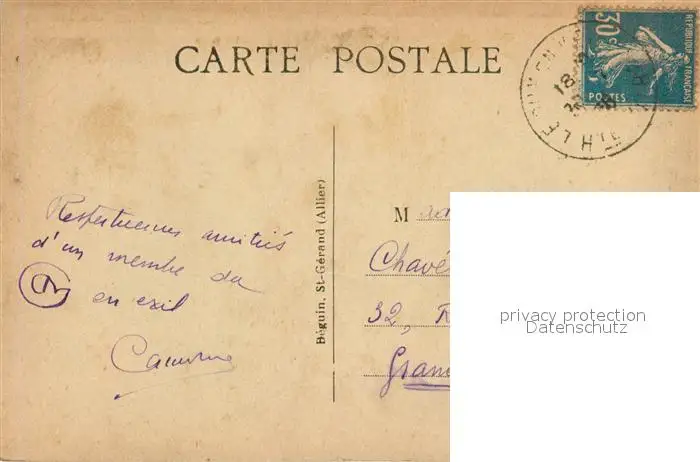 CARTE POSTALE
30c
POSTES
REPUBLIQUE FRANÇAISE
18
Respectueuses amitiés
d'un membre du
en exil
Béguin, St-Gérand (Allier)
M
Chavé
32, R
Gran
privacy protection
Datenschutz